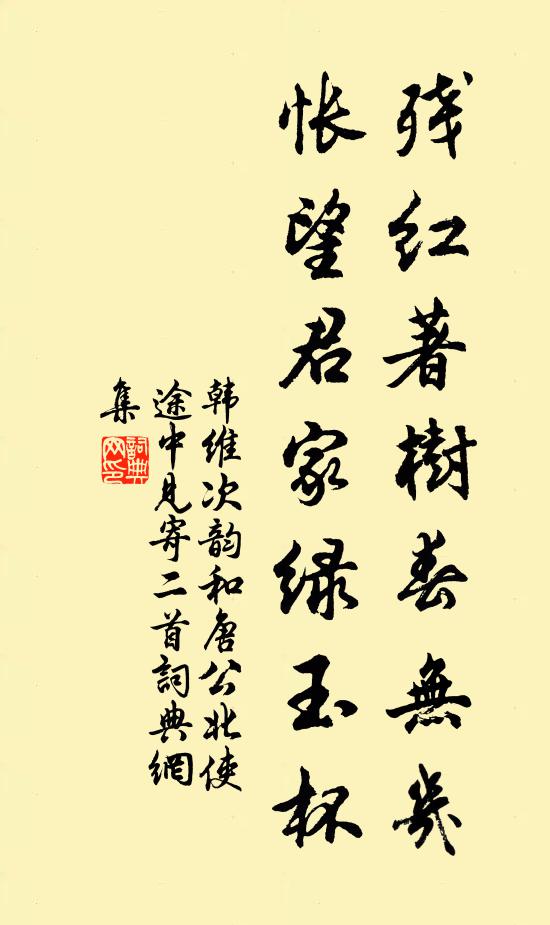 残红著樹春無幾
怅望君家绿玉杯
韩维次韵和唐公北使
途中見寄二首詞典網
集
詞典
网印